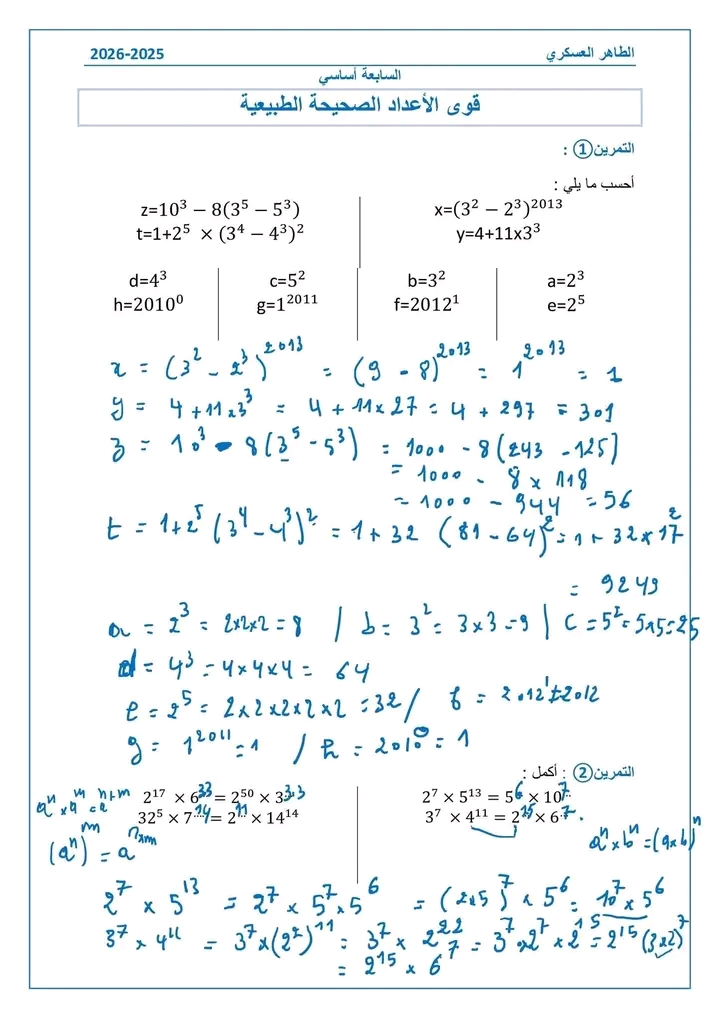 الطاهر العسكري 2025-2026
السابعة أساسي
قوى الأعداد الصحيحة الطبيعية
التمرين① :
أحسب ما يلي :
x=(3² − 2³)²⁰¹³ z=10³ − 8(3⁵ − 5³)
y=4+11x3³ t=1+2⁵ × (3⁴ − 4³)²
a=2³ b=3² c=5² d=4³
e=2⁵ f=2012¹ g=1²⁰¹¹ h=2010⁰
x = (3² - 2³)²⁰¹³ = (9 - 8)²⁰¹³ = 1²⁰¹³ = 1
y = 4 + 11 x 3³ = 4 + 11 x 27 = 4 + 297 = 301
z = 10³ - 8(3⁵ - 5³) = 1000 - 8(243 - 125)
= 1000 - 8 x 118
= 1000 - 944 = 56
t = 1 + 2⁵ (3⁴ - 4³)² = 1 + 32 (81 - 64)² = 1 + 32 x 17²
= 9249
a = 2³ = 2x2x2 = 8 / b = 3² = 3 x 3 = 9 | c = 5² = 5x5 = 25
d = 4³ = 4 x 4 x 4 = 64
e = 2⁵ = 2 x 2 x 2 x 2 x 2 = 32 / f = 2012¹ = 2012
g = 1²⁰¹¹ = 1 / h = 2010⁰ = 1
التمرين② : أكمل :
2⁷ × 5¹³ = 5⁶ × 10⁷ 2¹⁷ × 6³³ = 2⁵⁰ × 3³³
3⁷ × 4¹¹ = 2¹⁵ × 6⁷ 32⁵ × 7¹⁴ = 2¹¹ × 14¹⁴
aⁿ x aᵐ = aⁿ⁺ᵐ
(aⁿ)ᵐ = aⁿˣᵐ
aⁿ x bⁿ = (a x b)ⁿ
2⁷ x 5¹³ = 2⁷ x 5⁷ x 5⁶ = (2x5)⁷ x 5⁶ = 10⁷ x 5⁶
3⁷ x 4¹¹ = 3⁷ x (2²)¹¹ = 3⁷ x 2²² = 3⁷ x 2⁷ x 2¹⁵ = 2¹⁵ (3x2)⁷
= 2¹⁵ x 6⁷